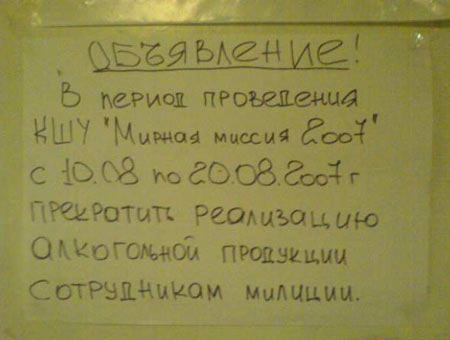 ОБЪЯВЛЕНИЕ!
В ПЕРИОД ПРОВЕДЕНИЯ
КШУ "Мирная миссия 2007"
с 10.08 по 20.08.2007г
ПРЕКРАТИТЬ РЕАЛИЗАЦИЮ
АЛКОГОЛЬНОЙ ПРОДУКЦИИ
СОТРУДНИКАМ МИЛИЦИИ.